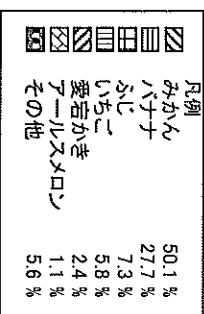 凡例
みかん 50.1 %
バナナ 27.7 %
ふじ 7.3 %
いちご 5.8 %
愛宕かき 2.4 %
アールスメロン 1.1 %
その他 5.6 %